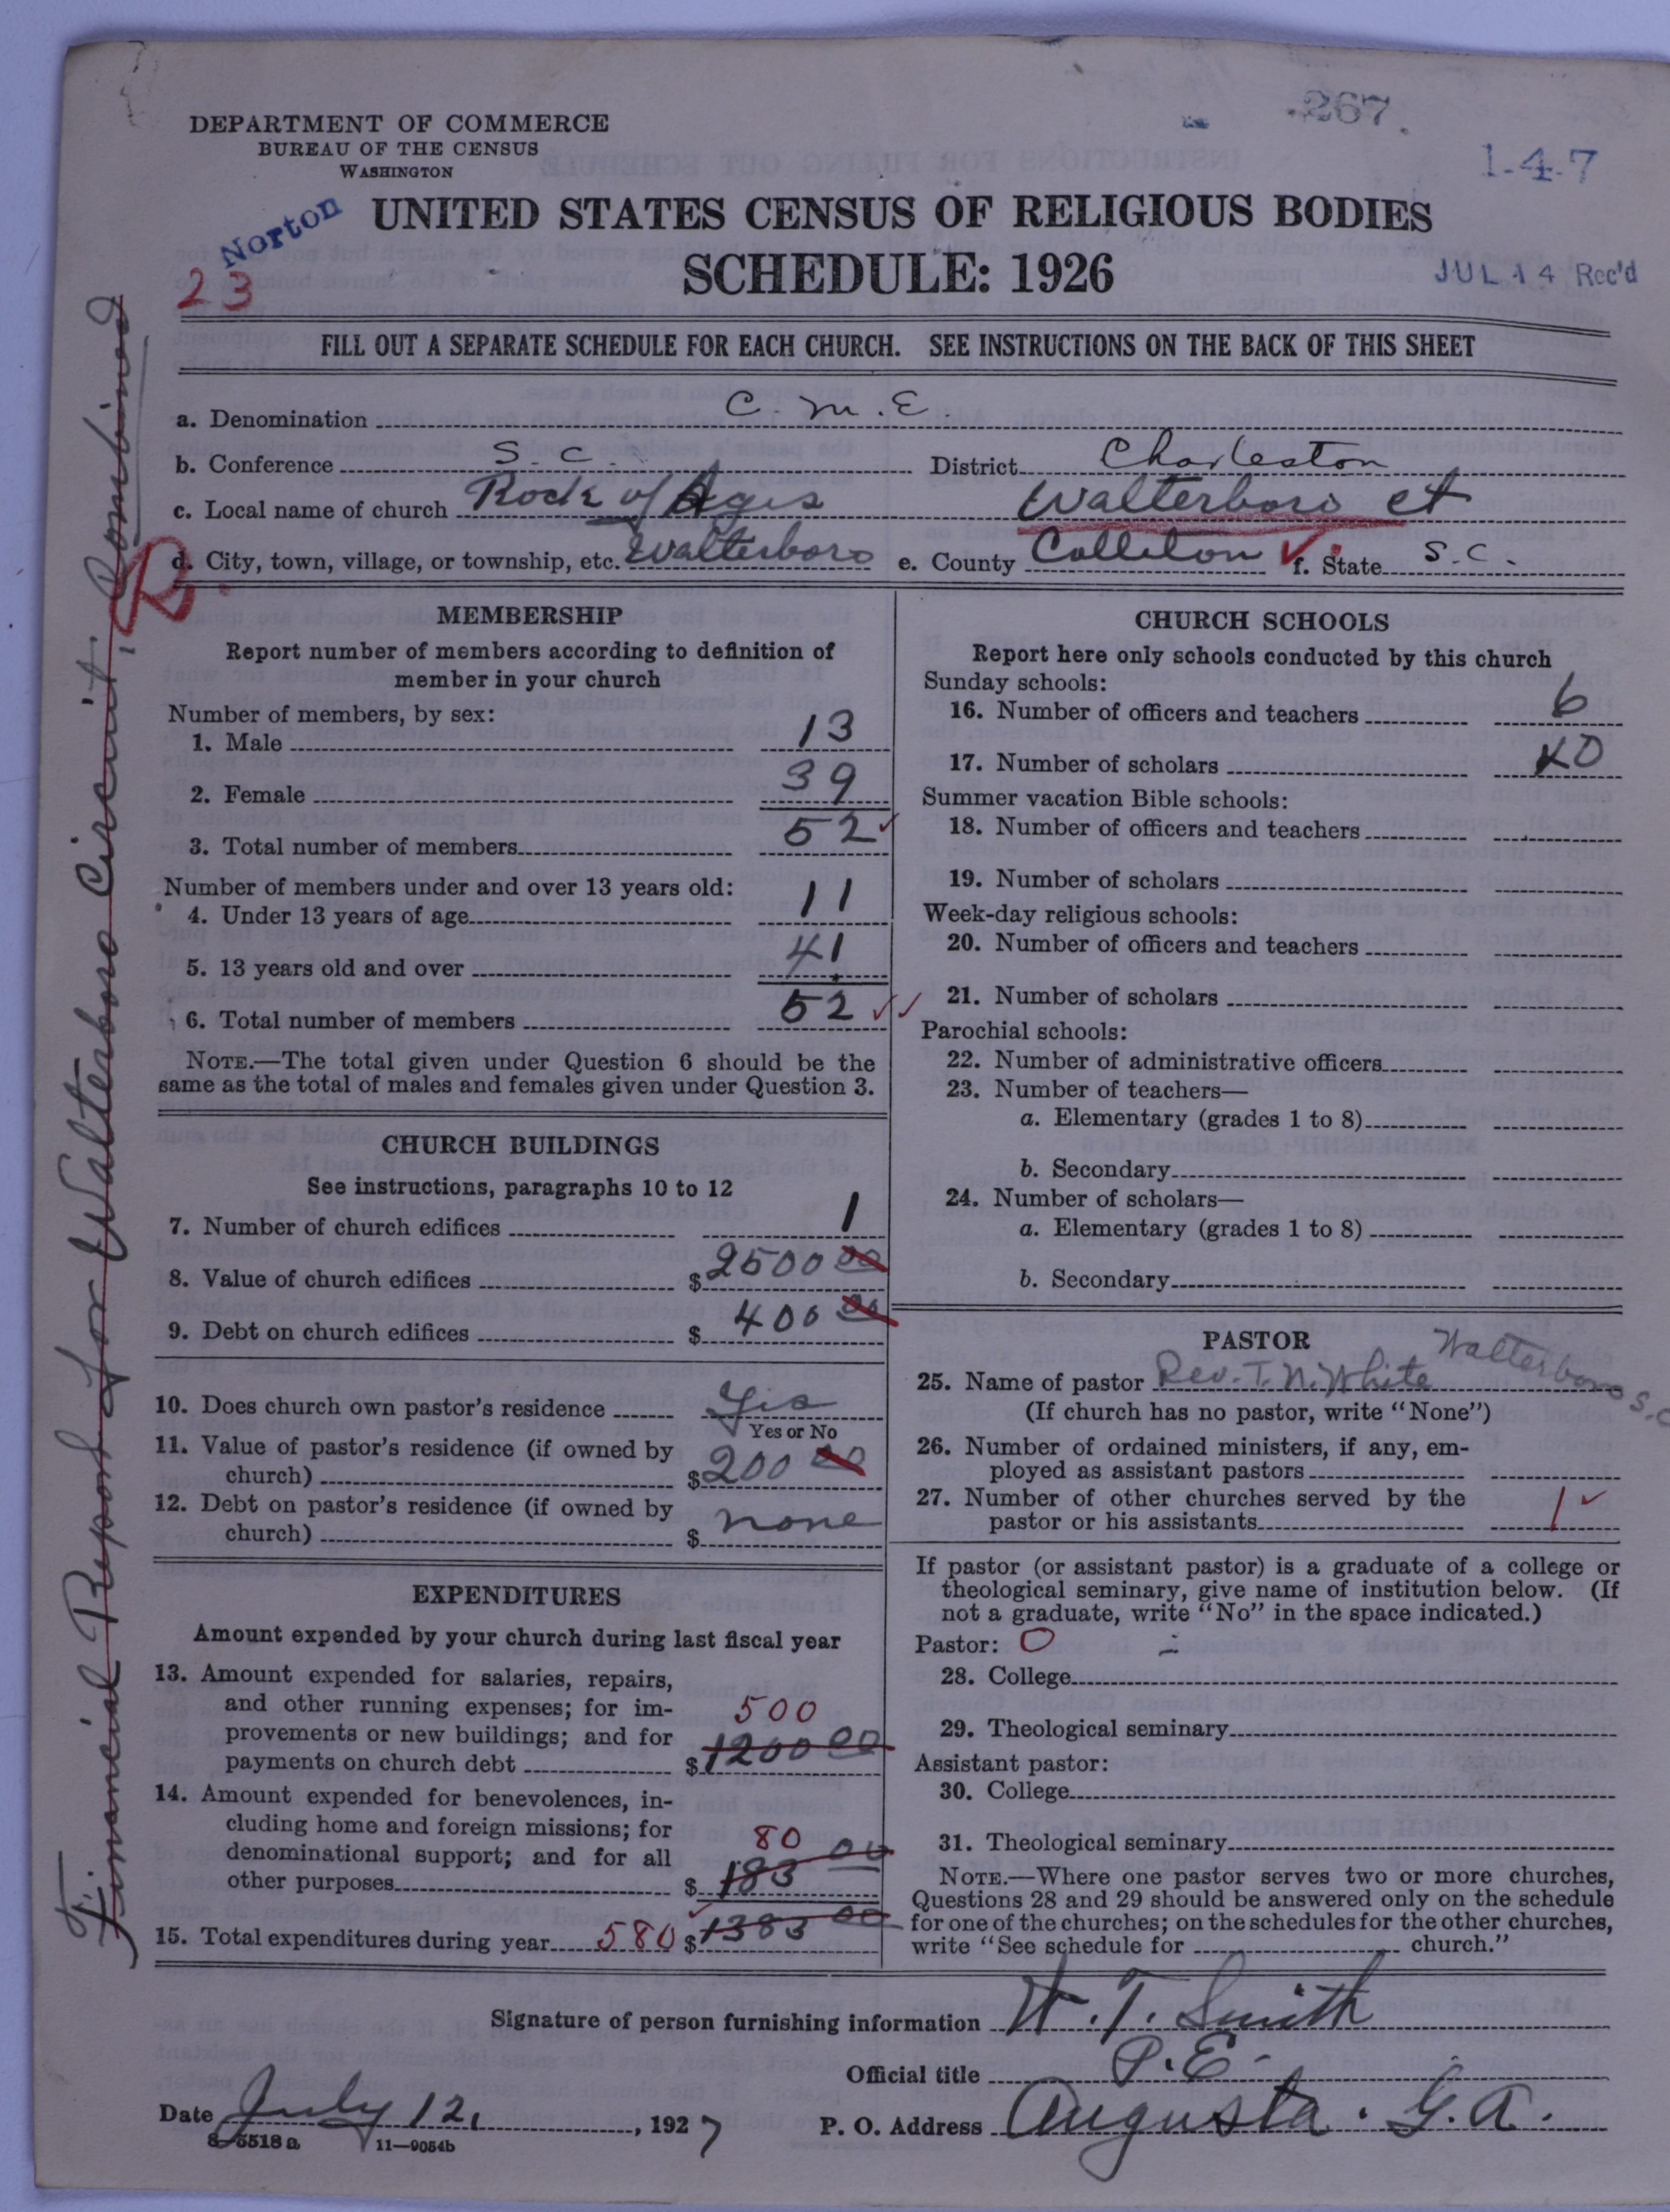 267
1-4-7
DEPARTMENT OF COMMERCE
BUREAU OF THE CENSUS
WASHINGTON
Norton
23
UNITED STATES CENSUS OF RELIGIOUS BODIES
SCHEDULE: 1926
JUL 14 Rec'd
FILL OUT A SEPARATE SCHEDULE FOR EACH CHURCH. SEE INSTRUCTIONS ON THE BACK OF THIS SHEET
a. Denomination C. M. E.
b. Conference S. C. District Charleston
c. Local name of church Rock of Ages Walterboro ct
d. City, town, village, or township, etc. Walterboro e. County Colleton f. State S. C.
R.
Financial Report for Walterboro Circuit, Combined
MEMBERSHIP
Report number of members according to definition of
member in your church
Number of members, by sex:
1. Male 13
2. Female 39
3. Total number of members 52 ✓
Number of members under and over 13 years old:
4. Under 13 years of age 11
5. 13 years old and over 41
6. Total number of members 52 ✓✓
NOTE.—The total given under Question 6 should be the
same as the total of males and females given under Question 3.
CHURCH BUILDINGS
See instructions, paragraphs 10 to 12
7. Number of church edifices 1
8. Value of church edifices $2500 00
9. Debt on church edifices $400 00
10. Does church own pastor's residence Yes
Yes or No
11. Value of pastor's residence (if owned by
church) $200 00
12. Debt on pastor's residence (if owned by
church) $ none
EXPENDITURES
Amount expended by your church during last fiscal year
13. Amount expended for salaries, repairs,
and other running expenses; for im-
500
provements or new buildings; and for
payments on church debt $1200 00
14. Amount expended for benevolences, in-
cluding home and foreign missions; for
80
denominational support; and for all
other purposes $183 00
15. Total expenditures during year 580 $1383 00
CHURCH SCHOOLS
Report here only schools conducted by this church
Sunday schools:
16. Number of officers and teachers 6
17. Number of scholars 40
Summer vacation Bible schools:
18. Number of officers and teachers
19. Number of scholars
Week-day religious schools:
20. Number of officers and teachers
21. Number of scholars
Parochial schools:
22. Number of administrative officers
23. Number of teachers—
a. Elementary (grades 1 to 8)
b. Secondary
24. Number of scholars—
a. Elementary (grades 1 to 8)
b. Secondary
PASTOR
25. Name of pastor Rev. T. N. White Walterboro S. C
(If church has no pastor, write "None")
26. Number of ordained ministers, if any, em-
ployed as assistant pastors
27. Number of other churches served by the
pastor or his assistants 1 ✓
If pastor (or assistant pastor) is a graduate of a college or
theological seminary, give name of institution below. (If
not a graduate, write "No" in the space indicated.)
Pastor: O
28. College
29. Theological seminary
Assistant pastor:
30. College
31. Theological seminary
NOTE.—Where one pastor serves two or more churches,
Questions 28 and 29 should be answered only on the schedule
for one of the churches; on the schedules for the other churches,
write "See schedule for church."
Signature of person furnishing information W. T. Smith
Official title P. E.
Date July 12, 1927 P. O. Address Augusta. G. A.
8-5518 a 11—9054b